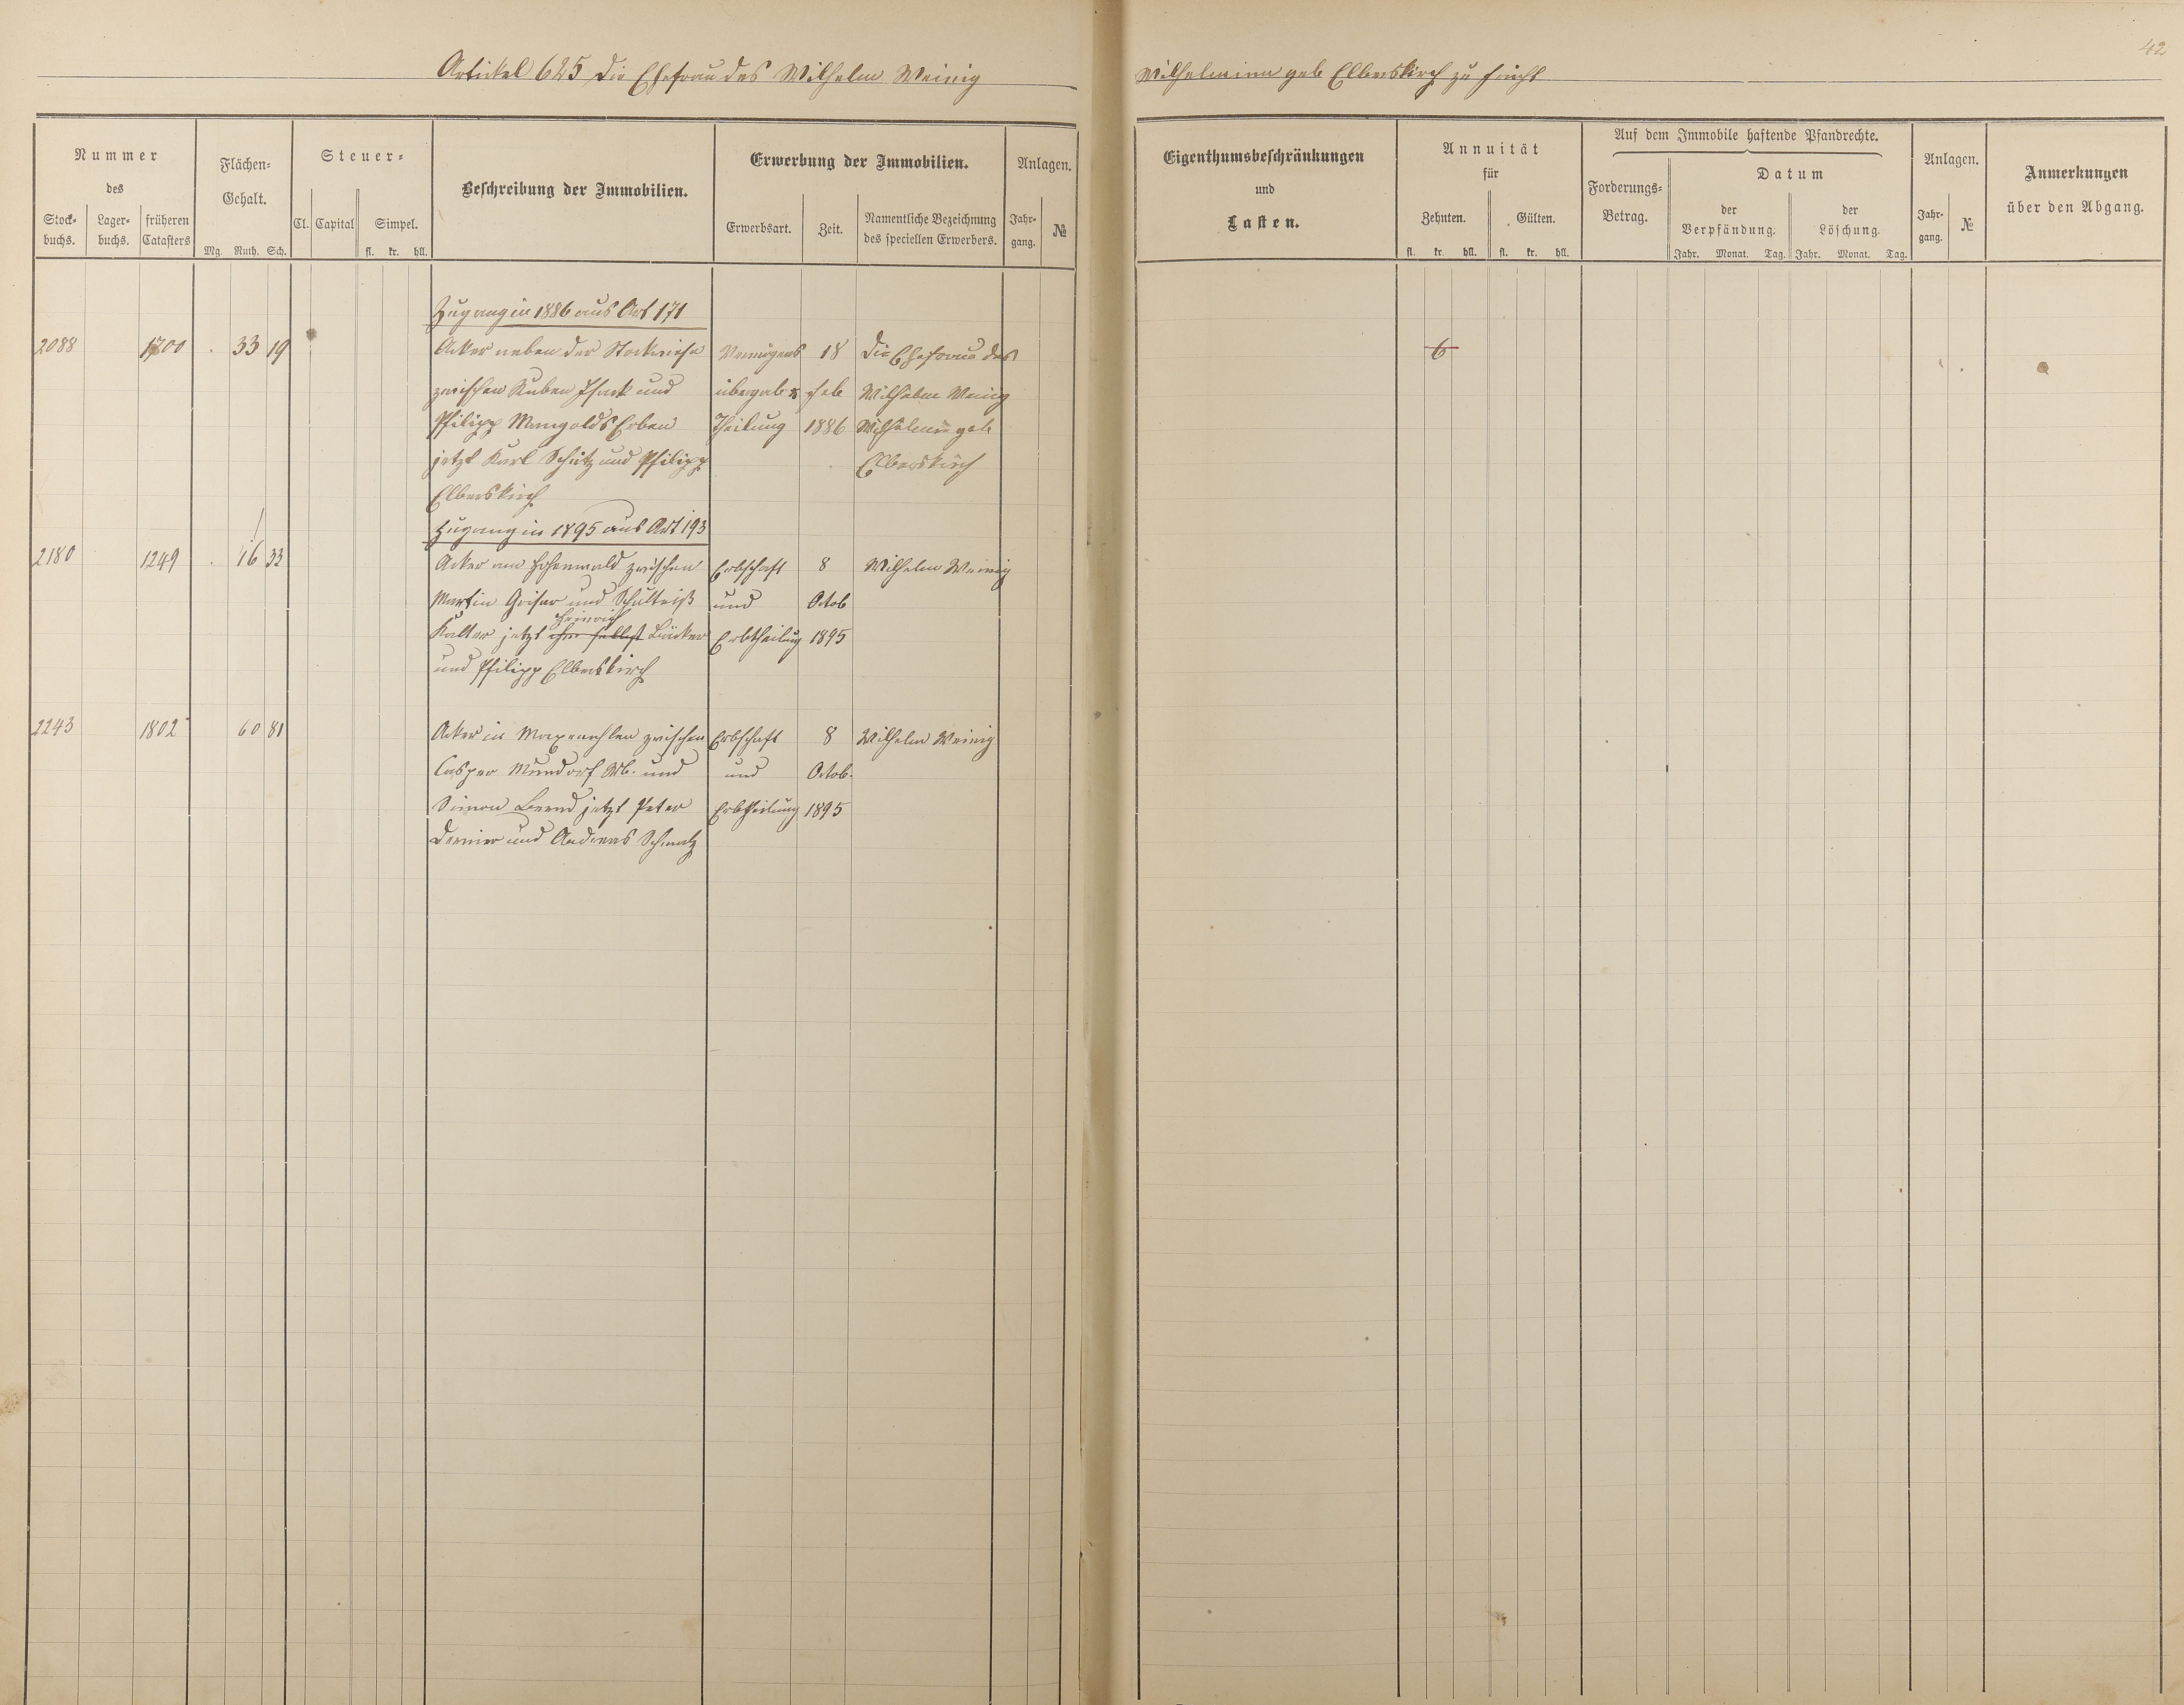 42
Artickel 625 die Ehefrau des Wilhelm Weinig
Wilhelmine geb Elberskirch zu Frücht
Nummer
des
Stock-
buchs.
Lager-
buchs.
früheren
Catasters
Flächen-
Gehalt.
Mg. Ruth. Sch.
Steuer-
Cl. Capital Simpel.
fl. kr. hll.
Beschreibung der Immobilien.
Erwerbung der Immobilien.
Erwerbsart. Zeit.
Namentliche Bezeichnung
des speciellen Erwerbers.
Anlagen.
Jahr-
gang.
№
Eigenthumsbeschränkungen
und
Lasten.
Annuität
für
Zehnten. Gülten.
fl. kr. hll. fl. kr. hll.
Auf dem Immobile haftende Pfandrechte.
Forderungs-
Betrag.
Datum
der
Verpfändung.
der
Löschung.
Jahr. Monat. Tag. Jahr. Monat. Tag.
Anlagen.
Jahr-
gang.
№
Anmerkungen
über den Abgang.
Zugang in 1886 aus Art 171
2088 1700 . 33 19 Acker neben der Stockwiese Vermögens 18 die Ehefrau des 6
zwischen Ruben Isack und übergab & Feb Wilhelm Weinig
Philipp Mangolds Erben Theilung 1886 Wilhelmine geb
jetzt Karl Schütz und Philipp Elberskirch
Elberskirch
Zugang in 1895 aus Art 193
2180 1249 . 46 33 Acker am Hohenwald zwischen Erbschaft 8 Wilhelm Weinig
Martin Griser und Schultheiß und Octob
Heinrich
Kalter jetzt ihm selbst Bäcker Erbtheilung 1895
und Philipp Elberskirch
2243 1802 60 81 Acker in zwischen Erbschaft 8 Wilhelm Weinig
Casper Mundorf Wb. und und Octob.
Simon Bernd jetzt Peter Erbtheilung 1895
und Andreas Schmalz